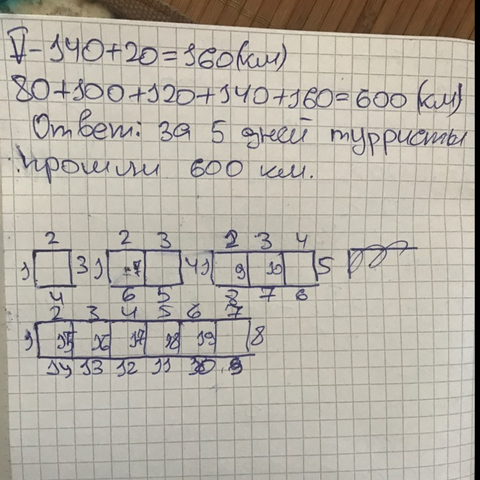 V-140+20=160(км)
80+100+120+140+160=600(км)
Ответ: за 5 дней турристы
прошли 600 км.
2 2 3 2 3 4
1 3 1 7 4 1 9 10 5
4 6 5 8 7 6
2 3 4 5 6 7
1 15 16 17 18 19 8
14 13 12 11 10 9